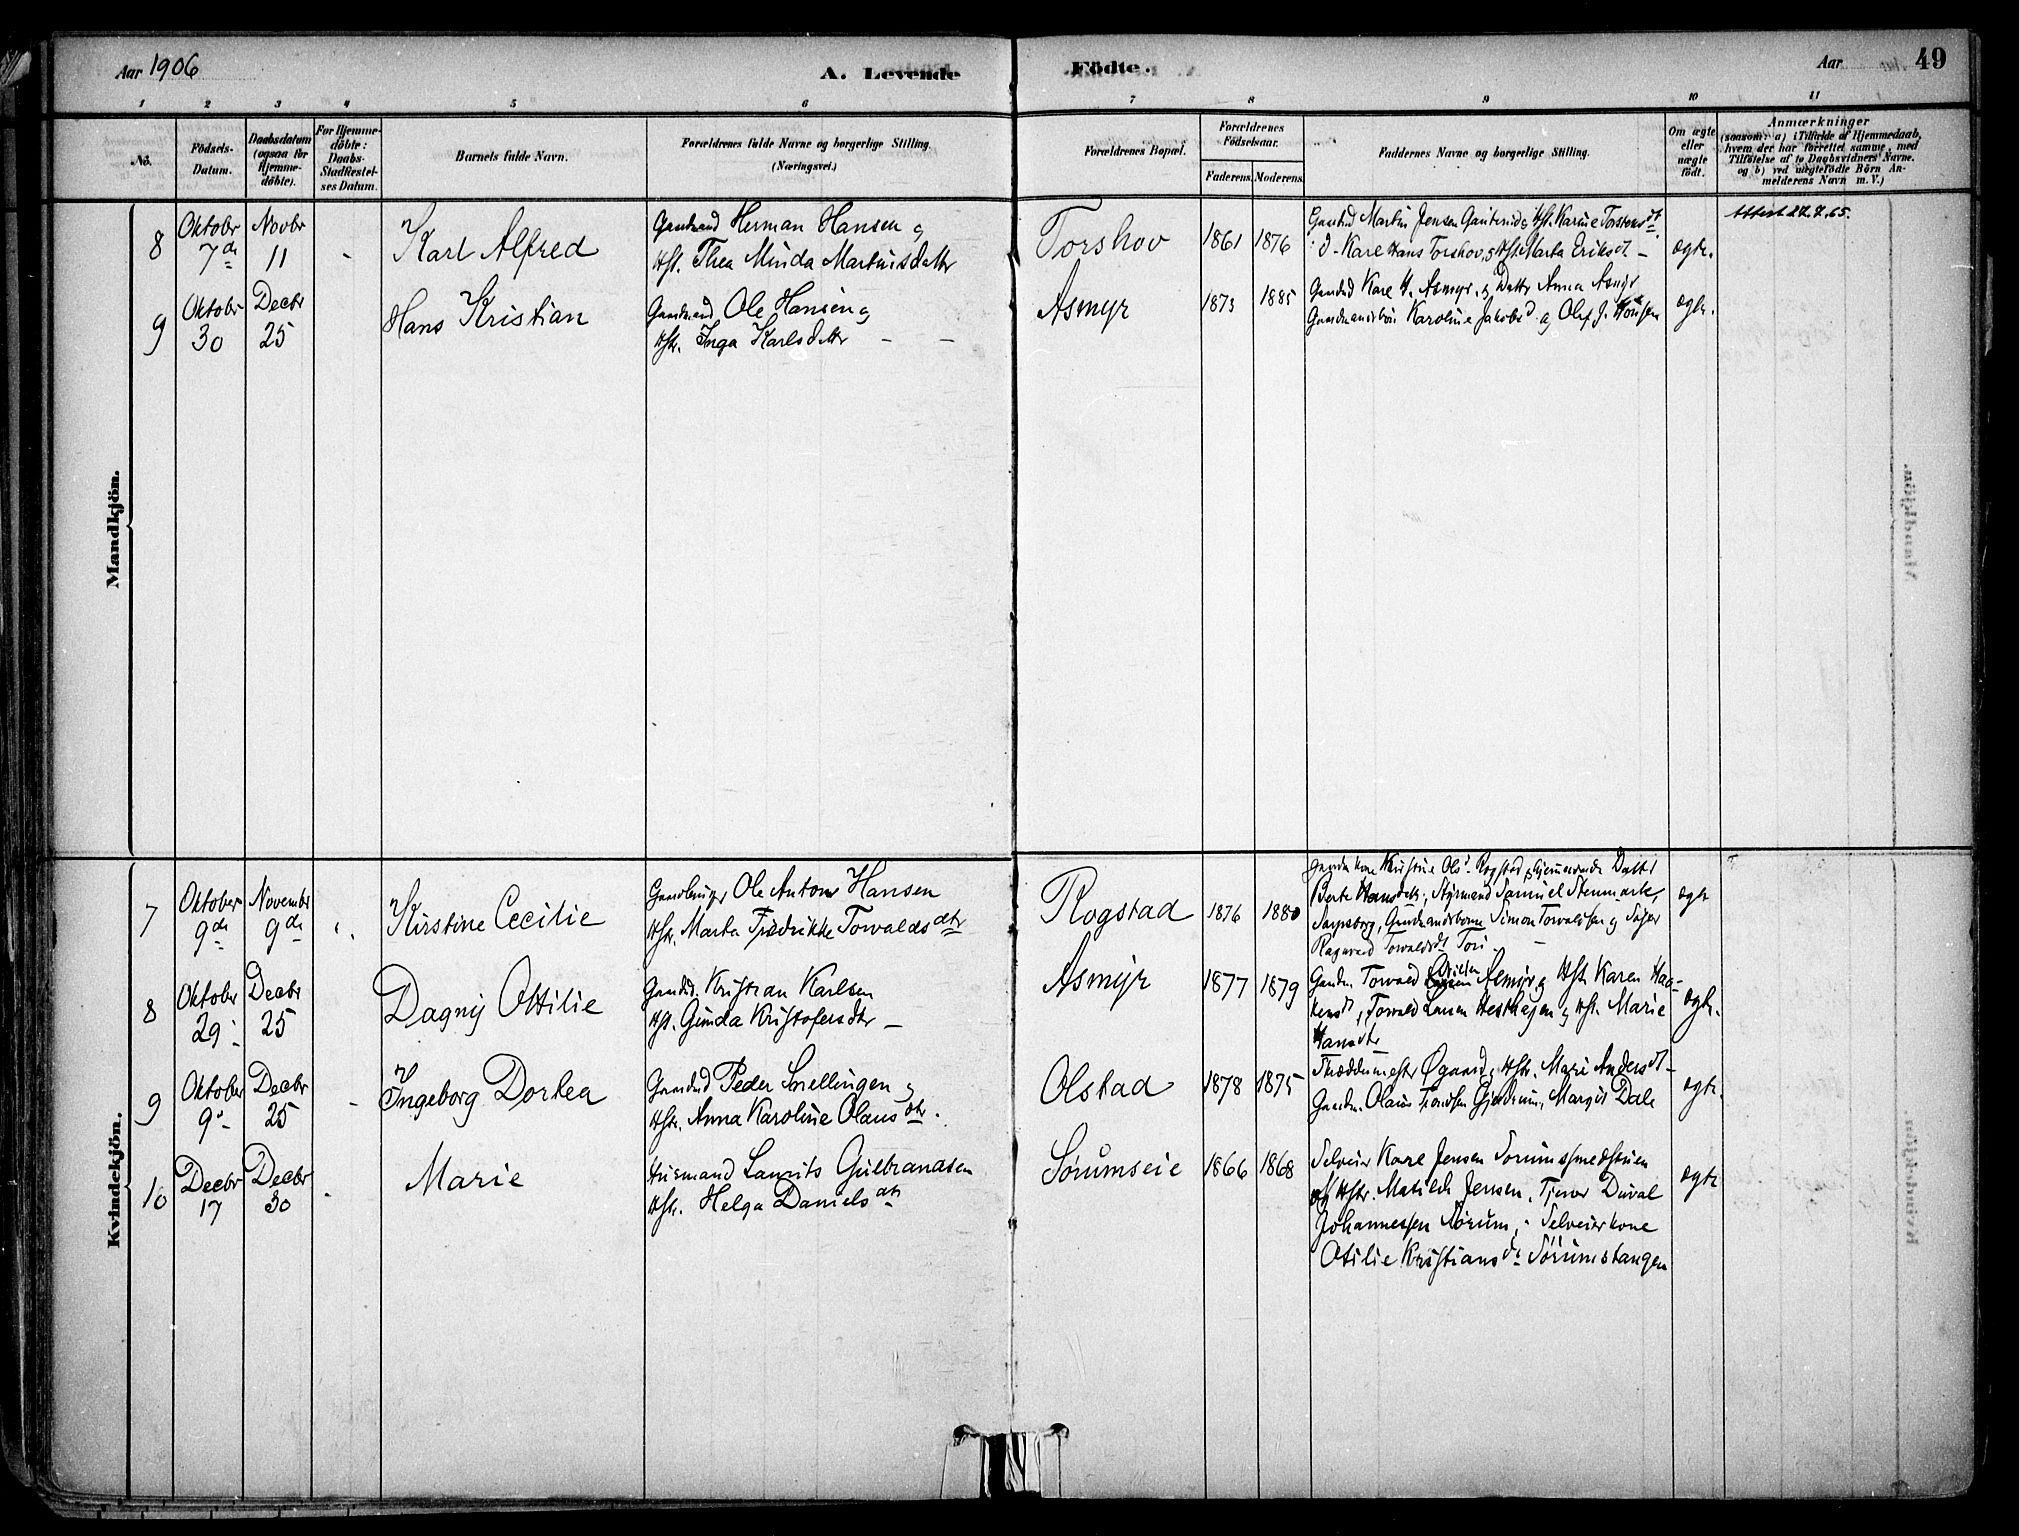 Aar 1906
A. Levende
Födte.
Aar
49
1 2 3 4 5 6 7 8 9 10 11
No.
Födsels-
Datum.
Daabsdatum
(ogsaa for
Hjemme-
döbte).
For Hjemme-
döbte:
Daabs-
Stadfæstel-
ses Datum.
Barnets fulde Navn.
Forældrenes fulde Navne og borgerlige Stilling.
(Næringsvei.)
Forældrenes Bopæl.
Forældrenes
Födselsaar.
Faderens. Moderens.
Faddernes Navne og borgerlige Stilling.
Om ægte
eller
uægte
födt.
Anmærkninger
(saasom: a) i Tilfælde af Hjemmedaab,
hvem der har forrettet samme, med
Tilföielse af to Daabsvidners Navne.
og b) ved uægtefödte Börn An-
melderens Navn m. V.)
Mandkjön.
8
Oktobr
7de
Novbr
11
Karl Alfred
Gaardmand Herman Hansen og
Hst. Thea Minda Martinisdattr
Torshov
1861 1876
Martin Jensen Hst. Karine Torstensdt
Karl Hans Torshov, Hst. Marta Eriksdt
ægte.
Attest 27.7.65.
9
Oktobr
30
Decbr
25
Hans Kristian
Gaardmand Ole Hansen og
Hstr. Inga Karlsdattr
Asmyr
1873 1885
Karl H. Asmyr. og Dattr Anna Asmyr
Karoline Jakobsd. og Olaf J.
ægte.
Kvindekjön.
7
Oktober
9de
November
9de
Kirstine Cecilie
Gaardbruger Ole Anton Hansen
Hstr. Marta Fredrikke Torvaldsdtr
Rogstad
1876 1880
Kristine Ols Rogstad, hjemmeværende Dattr
Berte Hansdtr, Styrmand Samuel Stenmark,
Sarpsborg, Simon Torvaldsen og
Ragnvald
ægte
8
Oktober
29
Decbr
25
Dagny Ottilie
Kristian Karlsen
Hst. Gunda Kristofersdtr
Asmyr
1877 1879
Gaardm. Torvald Asmyr og Hst. Karen Haa-
kensd, Torvald Larsen Hesthagen og Hst. Marie
Hansdtr
ægte.
9
Oktober
9
Decbr
25
Ingeborg Dortea
Peder Snellingen og
Hstr. Anna Karoline Olausdtr.
Olstad
1878 1875
Skræddermester Øgaard, Hstr. Mari Andersdt
Gaardm. Olaus Gjerdrum, Margit Dale
ægte.
10
Decbr
17
Decbr
30
Marie
Husmand Laurits Gulbrandsen
Hstr. Helga Danielsdtr
Sørumseie
1866 1868
Selveier Karl Jensen Sorumssmedstuen
og Hstr. Matilde Jensen,
Johannessen Sørum, Selveierkone
Otilie Kristiansdt Sörumstangen
ægte